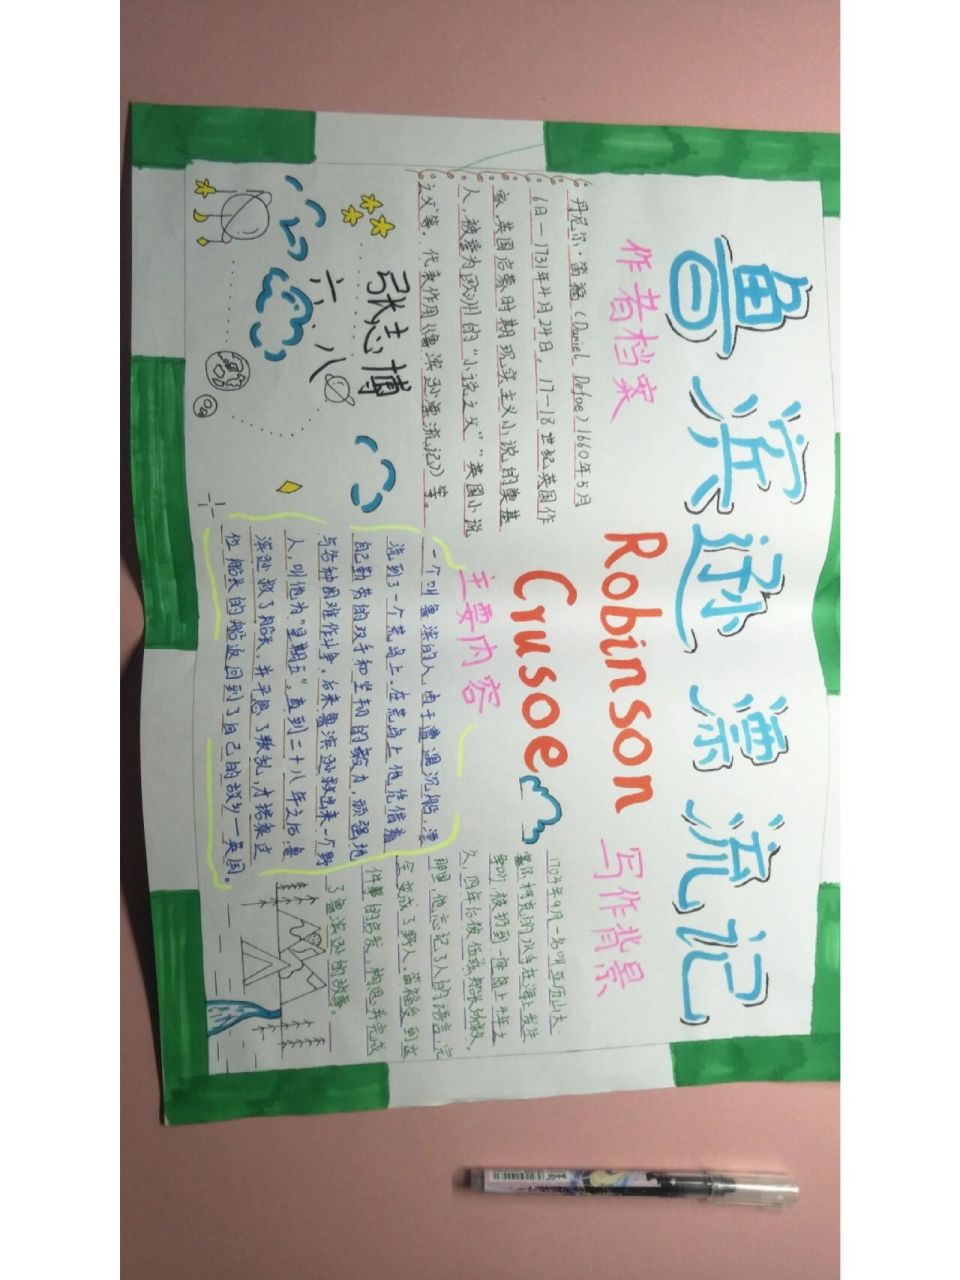 鲁滨逊漂流记
Robinson
Crusoe
作者档案
丹尼尔·笛福(Daniel Defoe)1660年5月
6日—1731年4月24日,17—18世纪英国作
家,英国启蒙时期现实主义小说的奠基
人,被誉为欧洲的“小说之父”“英国小说
之父”等。代表作用《鲁滨孙漂流记》等。
张志博
六、八
主要内容
一个叫鲁滨的人,由于遭遇沉船,漂
流到了一个荒岛上。在荒岛上他凭借着
自己勤劳的双手和坚韧的毅力,顽强地
与各种困难作斗争。后来鲁滨逊救出来一个野
人,叫他为“星期五”。直到二十八年之后,鲁
滨孙救了船长,并平息了叛乱,才搭乘这
位船长的船返回到了自己的故乡—英国。
写作背景
1704年9月一名叫亚历山大
塞尔柯克的水手在海上发生
争吵,被扔到一座岛上
久,四年后被伍兹船长所救,
那里,他忘记了人的语言,完
全变成了野人。笛福受到这
件事的启发,构思并完成
了鲁滨孙的故事。